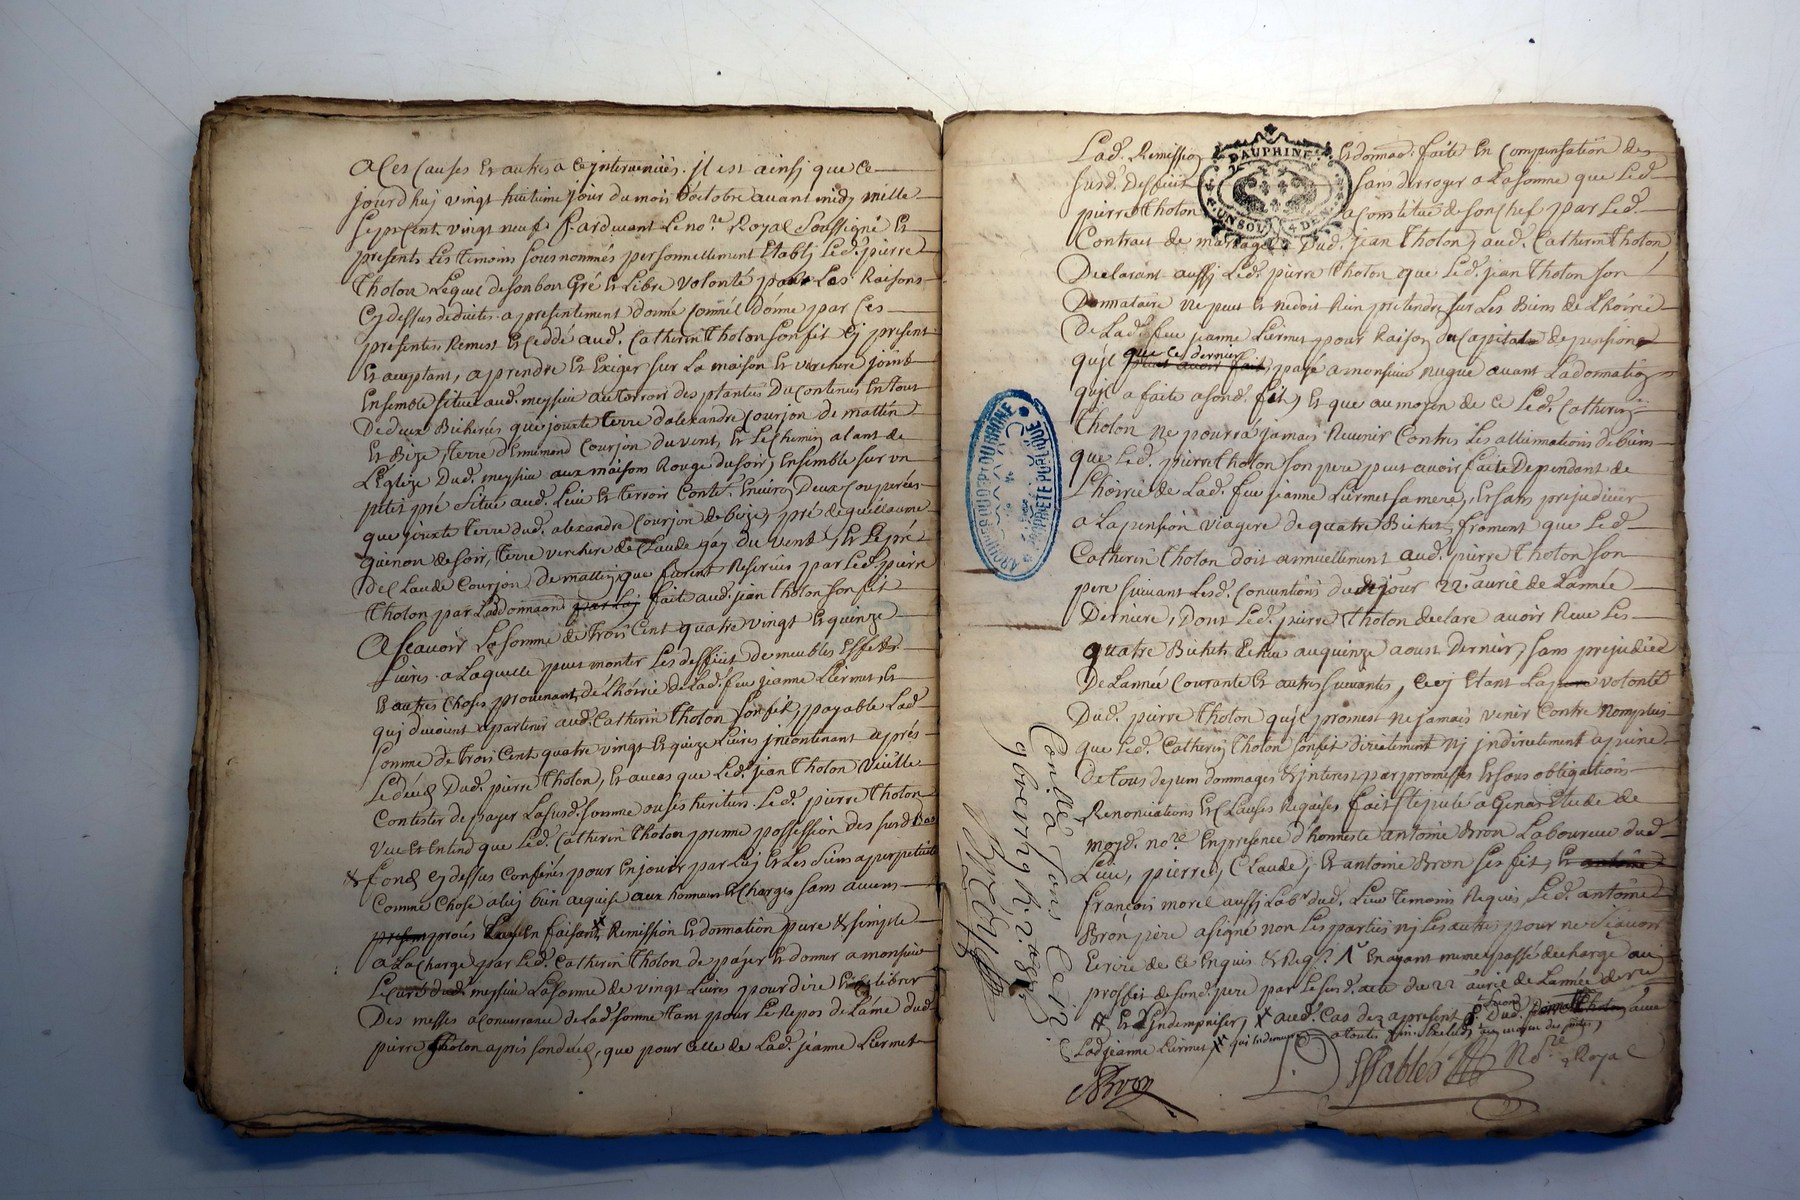 a Ces Causes Et autres a ce jntervenües. jl est ainsj que ce
jourdhuj vingt huitieme jour du mois d'octobre avant midy mille
sept cent vingt neuf. P.ardevant Le no.re Royal Soussigné Et
presents Les Temoins Sousnommés personnellement Etablj Led. pierre
Tholon Lequel de son bon Gré Et Libre volonté pour Les Raisons
Cy dessus deduites a presentement donné comme il donne par Ces
presentes Remest Et Ceddé aud. Catherin Tholon son fils Cy present
Et aceptant, a prendre Et Exiger sur La maison Et verchere joint
Ensemble située aud. meyssieu au Terroir des plantées Du Contenus En Tout
De deux Bicherées que jouxte Terre d'alexandre Courjon de mattin
Et Bize, Terre d'Ennemond Courjon du vent, Et Le chemin alant de
L'Eglize Dud. meyssieu aux maisons Rouge du soir, Ensemble sur un
petit pré Situé aud. Lieu Et Terroir Conte.t Environ Deux Couperées
que jouxte Terre dud. alexandre Courjon de bize, pré de guillaume
guinon de soir, Terre verchere de Claude gay du vent, Et Le pré
de Claude Courjon de mattin, que furent Reservées par Led. pierre
Tholon par La donnaon par Luj faite aud. jean Tholon son fils
A Scavoir La somme de Trois Cent quatre vingt Et quinze
Livres a Laquelle peut monter Les deffiut de meubles Effets
Et autres Choses provenant, de L'hoirie de Lad. feu jeanne Liermet, Et
quj devoient apartenir aud. Catherin Tholon son fils, payable Lad.
somme de Trois Cent quatre vingt Et quinze Livres jncontinant aprés
Le déced Dud. pierre Tholon, Et au cas que Led. jean Tholon vieille
Contester de payer La susd. somme ou ses heritiers. Led. pierre Tholon
Veut Et Entend que Led. Catherin Tholon prenne possession des susd. Bas
& fonds Cy dessus Conferés pour En jouir par Luj Et Les siens a perpetuité
Comme Chose a luj bien acquise aux honneurs Et Charges sans aucun
proces Luy En faisant Remission Et donnation pure & simple
a La Charge par Led. Catherin Tholon de payer Et donner a monsieur
Le curé dud. meyssieu La somme de vingt Livres pour dire Et Celebrer
Des messes a Concurrance de Lad. somme Tant pour Le Repos de L'ame dud.
pierre Tholon aprés son déced, que pour celle de Lad. jeanne Liermet
Lad. Remission Et donnaon. faite En Compensation des
susd. Deffiut sans derroger a La somme que Led.
DAUPHINE
UN SOL 4 DEN.
pierre Tholon a Constitué de son chef par Led.
Contrat de mariage Dud. jean Tholon, aud. Catherin Tholon
Declarant aussj Led. pierre Tholon que Led. jean Tholon son
Donnataire ne peut Et ne doit Rien pretendre sur Les Biens de L'hoirie
De Lad. feu jeanne Liermet pour Raison du Capital de pension
qu'jl que ce dernier peut avoir fait, payé a monsieur nugue avant La donnation
qu'jl a faite a sond. fils, Et que au moyen de Ce Led. Catherin
Tholon ne pourra jamais Revenir Contre Les allienations de biens
que Led. pierre Tholon son pere peut avoir faite Dependant de
L'hoirie de Lad. feu jeanne Liermet sa mere, Et sans prejudicier
a La pension viagere de quatre Bichets froment que Led.
Catherin Tholon doit annuellement aud. pierre Tholon son
pere suivant Lesd. Conventions dud. jour 22 avril de L'année
Derniere, Dont Led. pierre Tholon declare avoir Receu Les
quatre Bichets Echeu au quinze aoust dernier, sans prejudice
De L'année Courante Et autres suivantes, Cecy Etant La volonté
Dud. pierre Tholon qu'jl promest ne jamais venir Contre Non plus
que Led. Catherin Tholon son fils directement nj indirectement a peine
de Tous depens dommages & jnterest par promesses Et sous obligations
Renonciations Et Clauses Requises fait stipulé a Genas Etude de
moyd. no.re En presence d'honneste antoine Bron Laboureur dud.
Lieu, pierre, Claude, Et antoine Bron ses fils, Et antoine
françois morel aussj Lab.r dud. Lieu Temoins Requis, Led. antoine
Bron pere a signé non Les parties nj Les autres pour ne Scavoir
Ecrire de Ce Enquis & Req.s
proffit de sond. pere par Le susd. acte du 22 avril de L'année dere
Et L'Indempniser, aud. Cas dez a present
Lad. jeanne Liermet
ABron
Dessables No.re Royal
Conllé a
ARCHIVES DU DPT DU RHONE
PROPRIETE PUBLIQUE